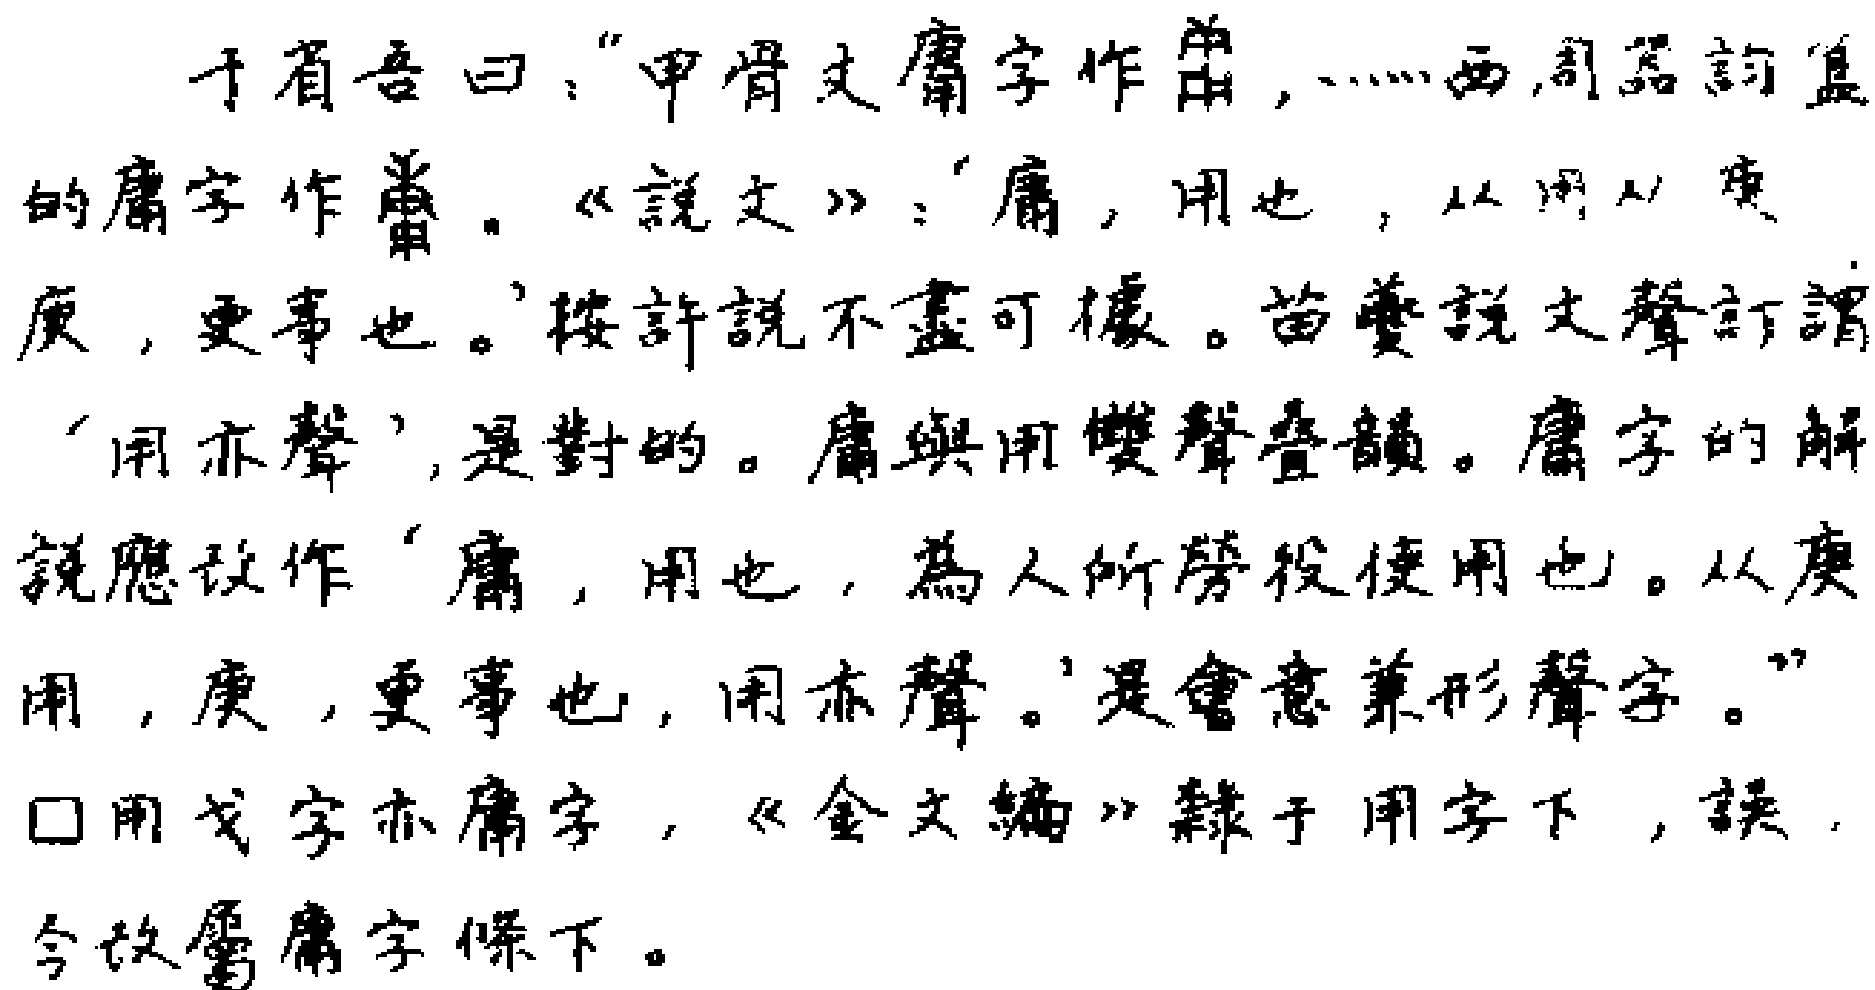 于省吾曰：“甲骨文庸字作，……西周器訇簋
的庸字作。《説文》：‘庸，用也，从用从庚
庚，更事也。’按許説不盡可據。苗夔説文聲訂謂
‘用亦聲’，是對的。庸與用雙聲叠韻。庸字的解
説應改作‘庸，用也，為人所勞役使用也。从庚
用，庚，更事也，用亦聲。’是會意兼形聲字。”
□用戈字亦庸字，《金文編》隸于用字下，誤，
今改屬庸字條下。